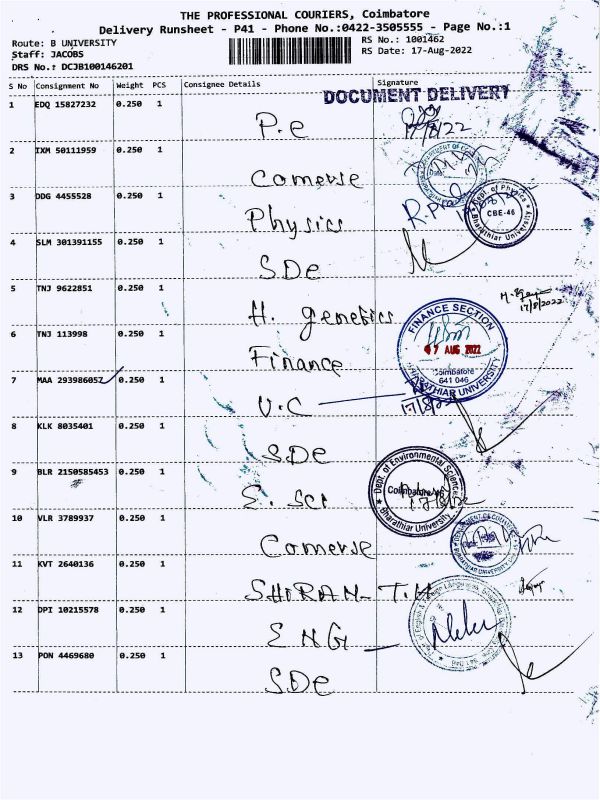 THE PROFESSIONAL COURIERS, Coimbatore
Delivery Runsheet - P41 - Phone No.:0422-3505555 - Page No.:1
Route: B UNIVERSITY
RS No.: 1001462
Staff: JACOBS
RS Date: 17-Aug-2022
DRS No.: DCJB100146201
S No Consignment No Weight PCS Consignee Details Signature
DOCUMENT DELIVERY
1 EDQ 15827232 0.250 1
P.e 17/8/22
2 IXM 50111959 0.250 1
Comerse
3 DDG 4455528 0.250 1
Physics
Dept. of Physics CBE-46 Bharathiar University
4 SLM 301391155 0.250 1
S.De
5 TNJ 9622851 0.250 1
H. genetics 17/8/2022
6 TNJ 113998 0.250 1
Finance
FINANCE SECTION
17 AUG 2022
Coimbatore
641 046
BHARATHIAR UNIVERSITY
7 MAA 293986057 0.250 1
V.C
8 KLK 8035401 0.250 1
S.De
9 BLR 2150585453 0.250 1
E. Sci
Dept. of Environmental Science
Bharathiar University
10 VLR 3789937 0.250 1
Comerse
11 KVT 2640136 0.250 1
SHIRAN-T.H
12 DPI 10215578 0.250 1
ENG
13 PON 4469680 0.250 1
S.De